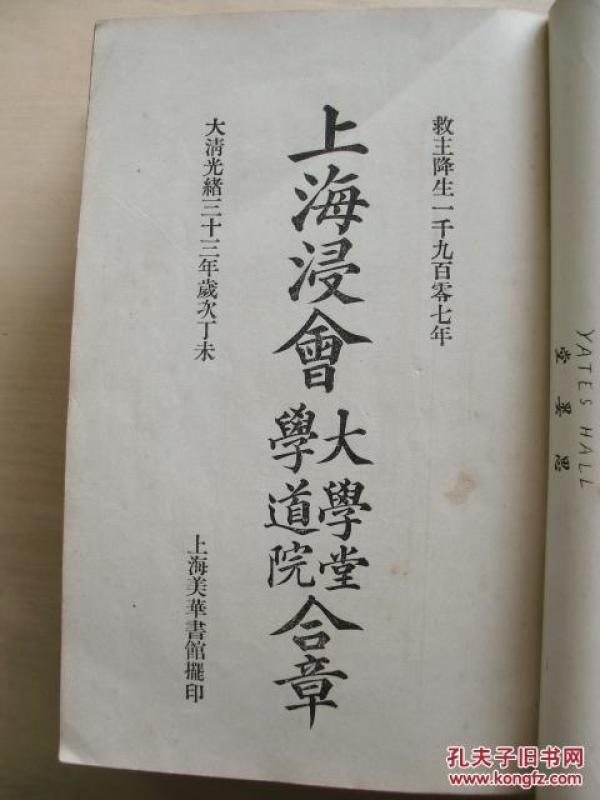 救主降生一千九百零七年
上海浸會
大學堂
學道院
合章
大清光緒三十三年歲次丁未
上海美華書館擺印
YATES HALL
思晏堂
孔夫子旧书网
www.kongfz.com